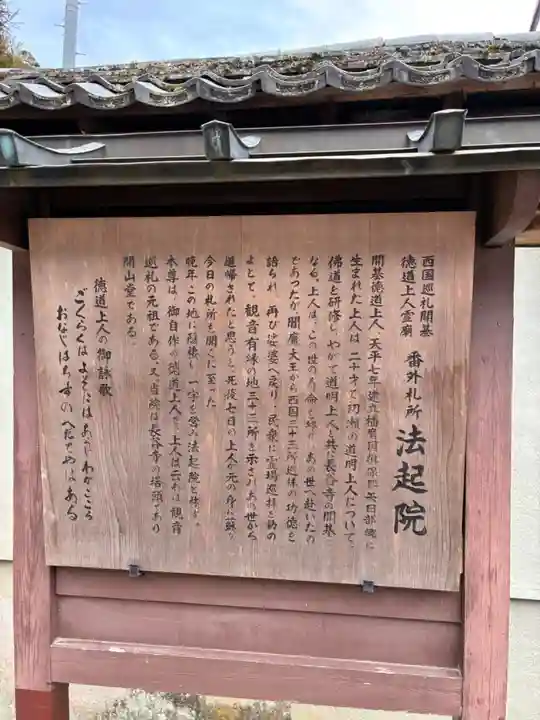 西国巡礼開基
徳道上人霊廟
番外札所 法起院
開基徳道上人、天平七年建立播磨国揖保郡矢田部郷に
生まれた上人は二十才で初瀬の道明上人について、
佛道を研修し、やがて道明上人と共に長谷寺の開基と
なる。上人は、この世の寿命を終り、あの世へ赴いたの
であったが、閻魔大王から西国三十三所巡拝の功徳を
語られ、再び娑婆へ戻り、民衆に霊場巡拝を勧め
よとて、観音有縁の地三十三所を示され、あの世から
還帰されたと思うと、死後七日の上人が元の身に蘇り
今日の札所を開くに至った。
晩年この地に隠棲し一宇を営み法起院と称す。
本尊は、御自作の徳道上人で、上人は云わば観音
巡礼の元祖である。又、当院は長谷寺の塔頭であり
開山堂である。
徳道上人の御詠歌
ごくらくはよそにはあらじわがこころ
おなじはちすのへだてやはある